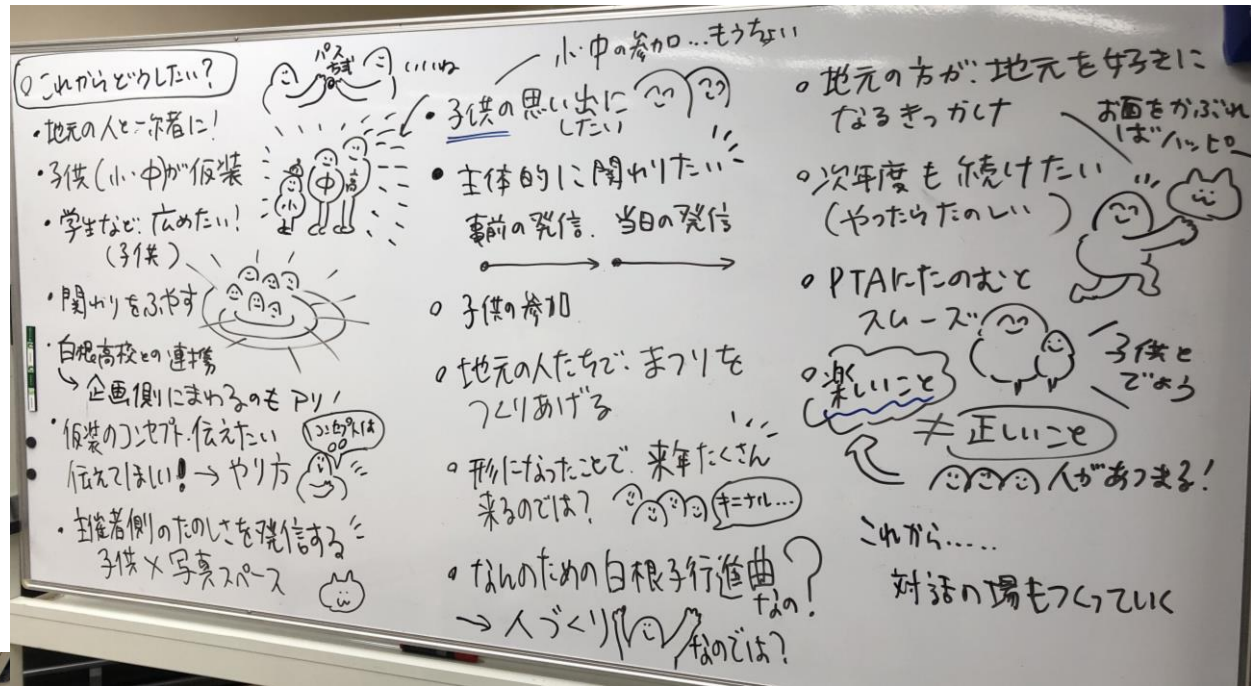 ○これからどうしたい?
・地元の人と一緒に!
・子供(小・中)が仮装
・学生など、広めたい!
(子供)
・関わりをふやす
・白根高校との連携
↳企画側にまわるのもアリ!
・仮装のコンセプト伝えたい
伝えてほしい!→やり方
コンセプトは
・主催者側のたのしさを発信する
子供×写真スペース
パス
いいね
小
中
高
小・中の参加…もうちょい
・子供の思い出に
したい
・主体的に関わりたい
事前の発信、当日の発信
○子供の参加
○地元の人たちで、まつりを
つくりあげる
○形になったことで、来年たくさん
来るのでは?
キニナル…
○なんのための白根子行進曲
なの?
→人づくり
なのでは?
○地元の方が、地元を好きに
なるきっかけ
お面をかぶれ
ばハッピー
○次年度も続けたい
(やったらたのしい)
○PTAにたのむと
スムーズ
子供と
でよう
○楽しいこと
≠正しいこと
人があつまる!
これから……
対話の場もつくっていく